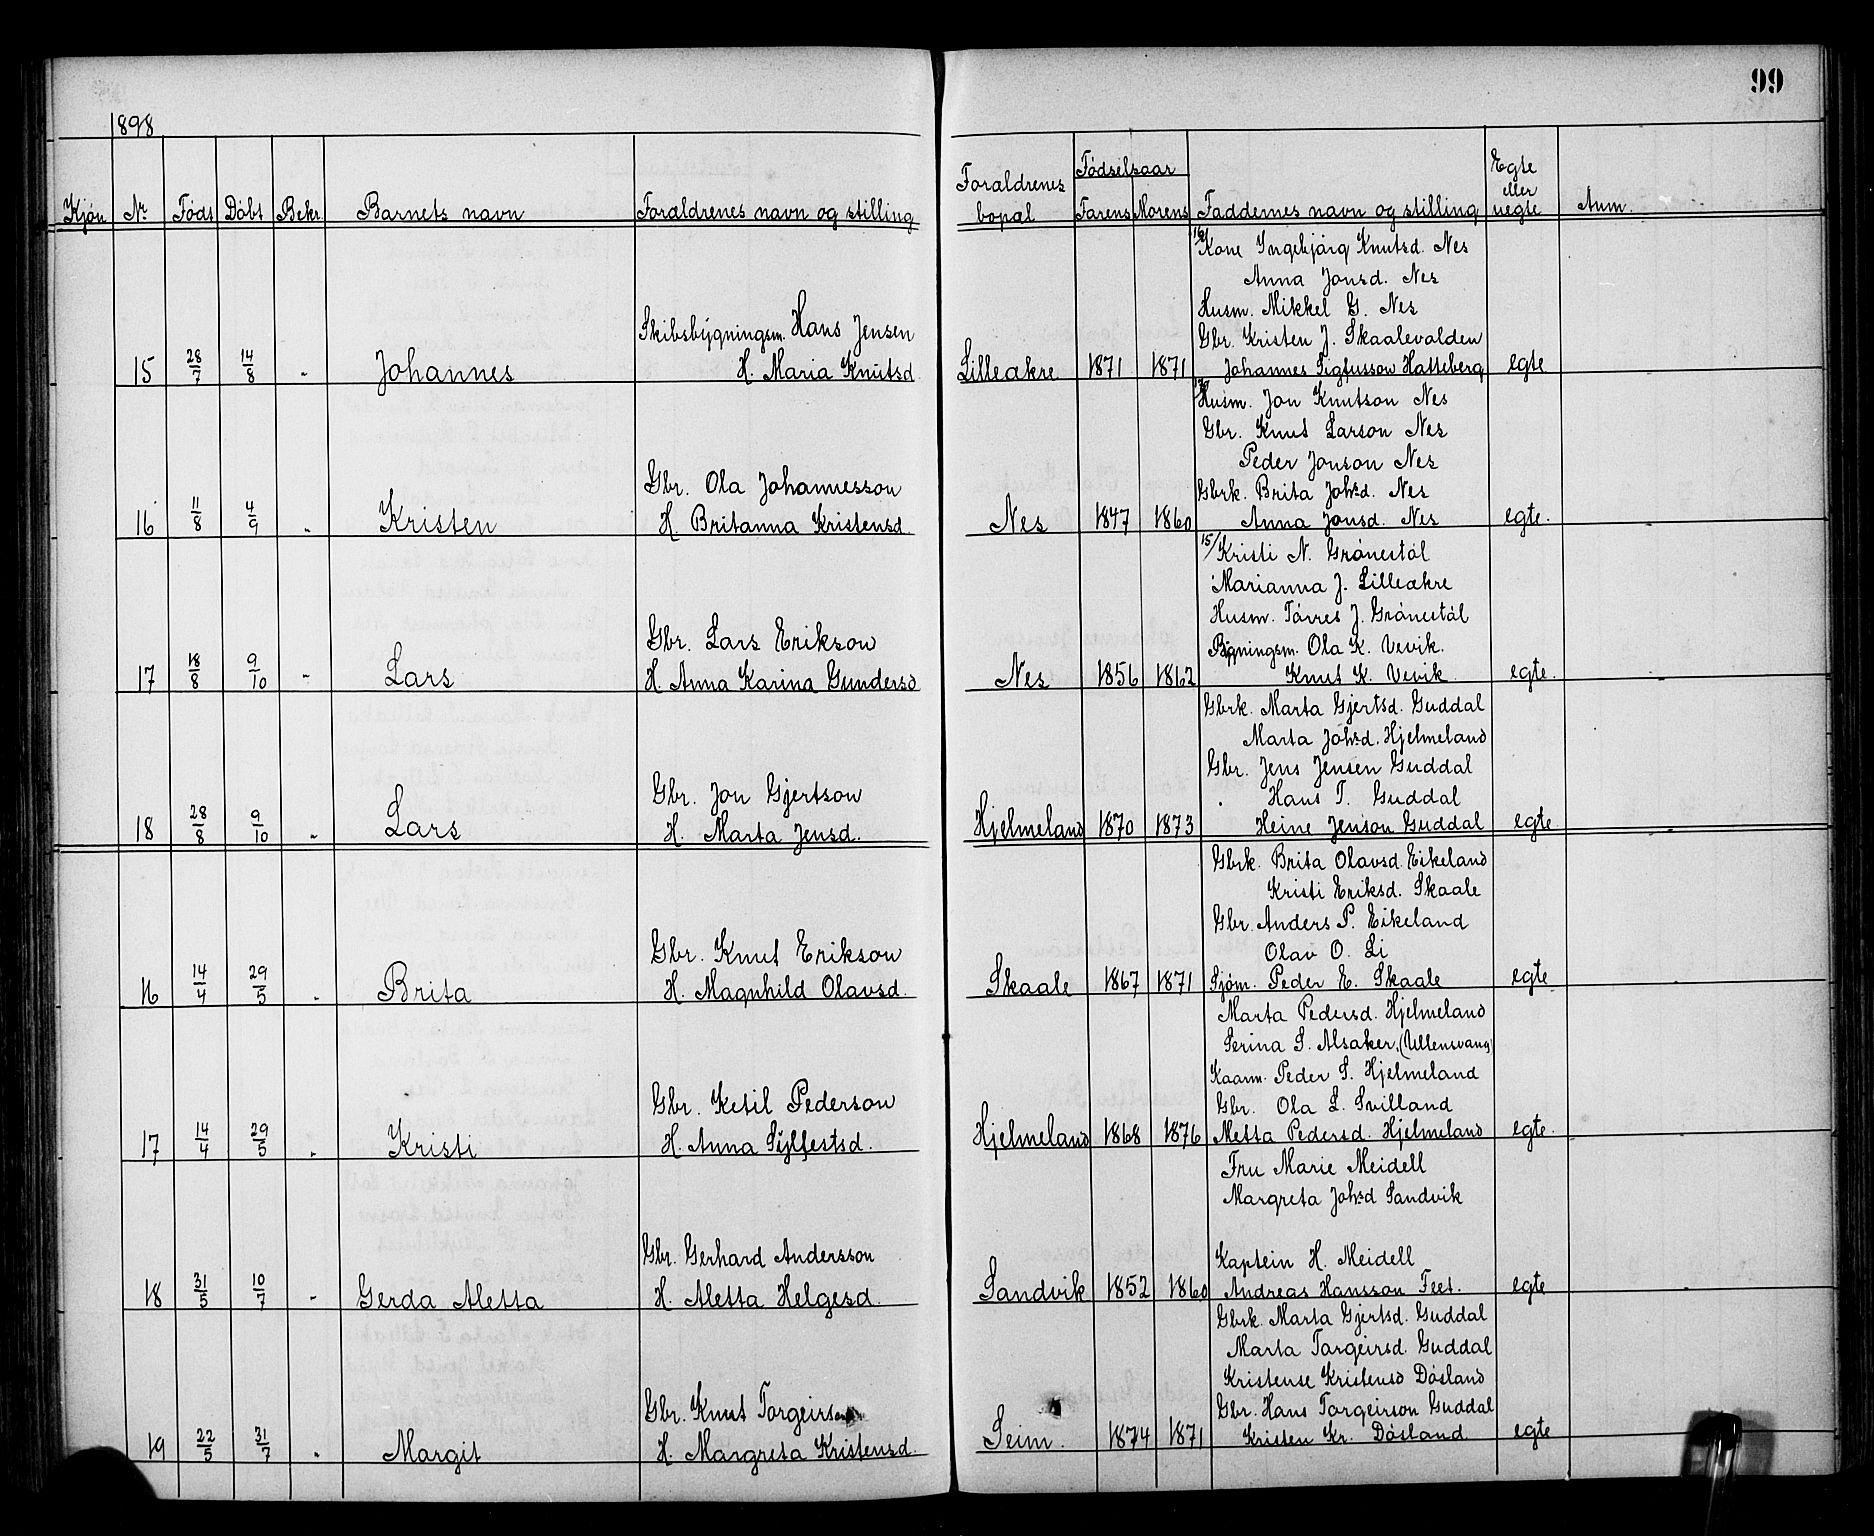 99
1898
Kjön Nr Födt Döbt Bekr. Barnets navn Foraldrenes navn og stilling Foraldrenes bopal Födselsaar Farens Morens Faddernes navn og stilling Egte eller uegte Anm.
Kone Ingebjörg Knutsd. Nes
Anna Jonsd. Nes
Husm. Mikkel G. Nes
Skibsbygningsm. Hans Jensen Gbr. Kristen J. Skaalevolden
15 28/7 14/8 " Johannes H. Maria Knutsd. Lilleakre 1871 1871 Johannes Sigfusson Hatteberg egte
Husm. Jon Knutson Nes
Gbr. Knut Larson Nes
Peder Jonson Nes
Gbr. Ola Johannesson Gbrk. Brita Johsd. Nes
16 11/8 4/9 " Kristen H. Britanna Kristensd. Nes 1847 1860 Anna Jonsd. Nes egte.
15/ Kristi N. Grönestöl
Marianna J. Lilleakre
Husm. Törres J. Grönestöl
Gbr. Lars Erikson Bygningsm. Ola K. Vevik.
17 18/8 9/10 " Lars H. Anna Karina Gundersd Nes 1856 1862 Knut K. Vevik egte.
Gbrk. Marta Gjertsd. Guddal
Marta Johsd. Hjelmeland
Gbr. Jens Jensen Guddal
Gbr. Jon Gjertson Hans T. Guddal
18 28/8 9/10 " Lars H. Marta Jensd. Hjelmeland 1870 1873 Heine Jenson Guddal egte
Gbrk. Brita Olavsd. Eikeland
Kristi Eriksd. Skaale
Gbr. Anders P. Eikeland
Gbr. Knut Erikson Olav O. Li
16 14/4 29/5 " Brita H. Magnhild Olavsd. Skaale 1867 1871 Sjöm. Peder E. Skaale egte
Marta Pedersd. Hjelmeland
Serina S. Alsaker, (Ullensvang)
Kaarm. Peder S. Hjelmeland
Gbr. Ketil Pederson Gbr. Ola L. Svilland
17 14/4 29/5 " Kristi H. Anna Sylfestsd. Hjelmeland 1868 1876 Metta Pedersd. Hjelmeland egte.
Fru Marie Meidell
Margreta Johsd Sandvik
Gbr. Gerhard Andersson Kaptein H. Meidell
18 31/5 10/7 " Gerda Aletta H. Aletta Helgesd. Sandvik 1852 1860 Andreas Hansson Feet. egte
Gbrk. Marta Gjertsd. Guddal
Marta Torgeirsd. Guddal
Kristense Kristensd Dösland
Gbr. Knut Torgeirson Gbr. Hans Torgeirson Guddal
19 22/5 31/7 " Margit H. Margreta Kristensd. Seim. 1874 1871 Kristen Kr. Dösland egte